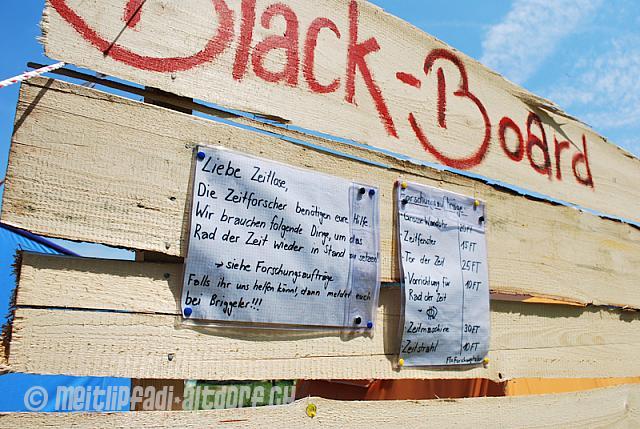 Black-Board
Liebe Zeitlose,
Die Zeitforscher benötigen eure Hilfe.
Wir brauchen folgende Dinge, um das
Rad der Zeit wieder in Stand zu setzen!
→ siehe Forschungsaufträge
Falls ihr uns helfen könnt, dann meldet euch
bei Briggeler!!!
Forschungsaufträge
Zeitfenster 15 FT
Tor der Zeit 25 FT
Vorrichtung für 10 FT
Rad der Zeit
Zeitmaschine 30 FT
Zeitstrahl 10 FT
© meitlipfadi-altdorf.ch